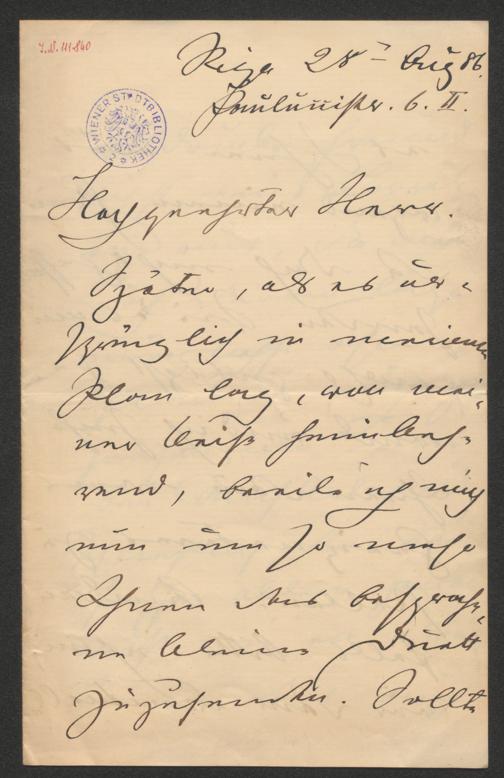 I.N. 111.840
WIENER STADTBIBLIOTHEK
Riga 28 Aug 86.
Paulucci str. 6. II.
Hochgeehrter Herr.
Später, als es ur-
sprünglich in meinem
Plan lag, von mei-
ner Reise heimkeh-
rend, beeile ich mich
nun um so mehr
Ihnen das besproche-
ne kleine Duett
zuzusenden. Sollte